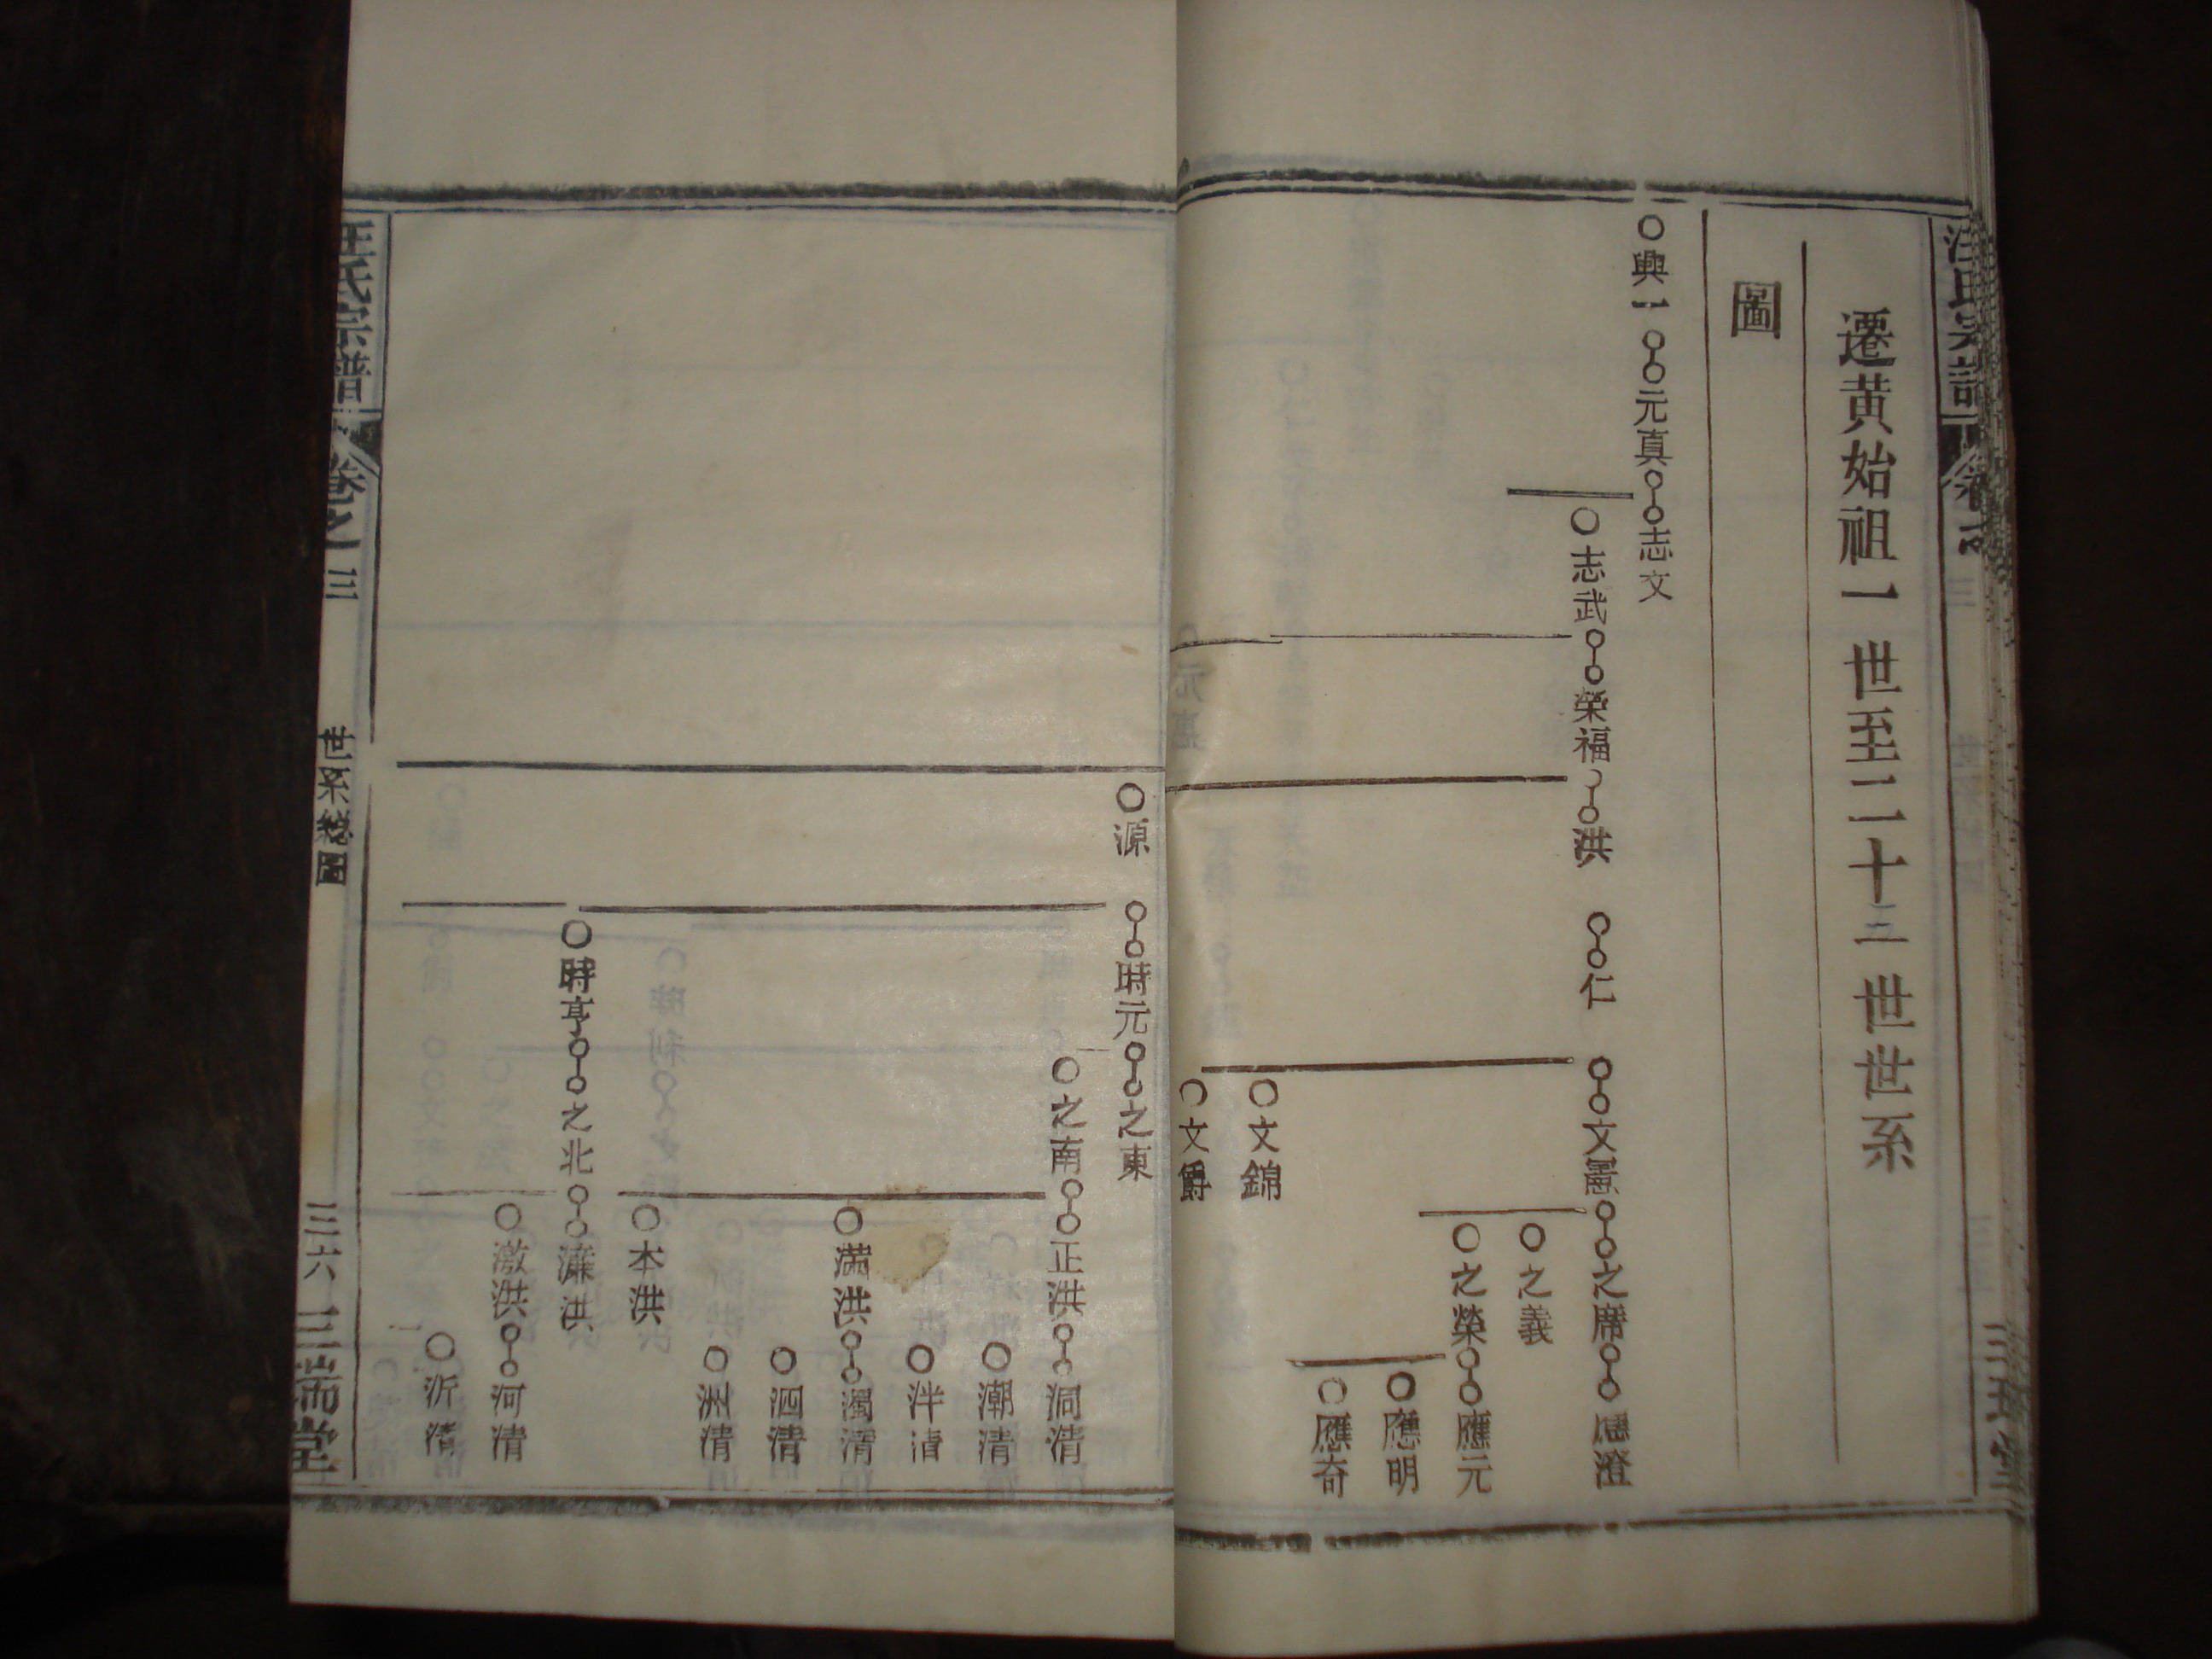 遷黄始祖一世至二十三世世系
圖
興一 元真 志文
志武 榮福 洪 仁 文憲 之席 應澄
之義
之榮 應元
應明
應奇
文錦
文爵
源 時元 之東
之南 正洪 洞清
潮清
泮清
滿洪 濁清
泗清
洲清
本洪
時亨 之北 濂洪
激洪 河清
沂清
汪氏宗譜 卷之三 世系總圖 三六 三瑞堂